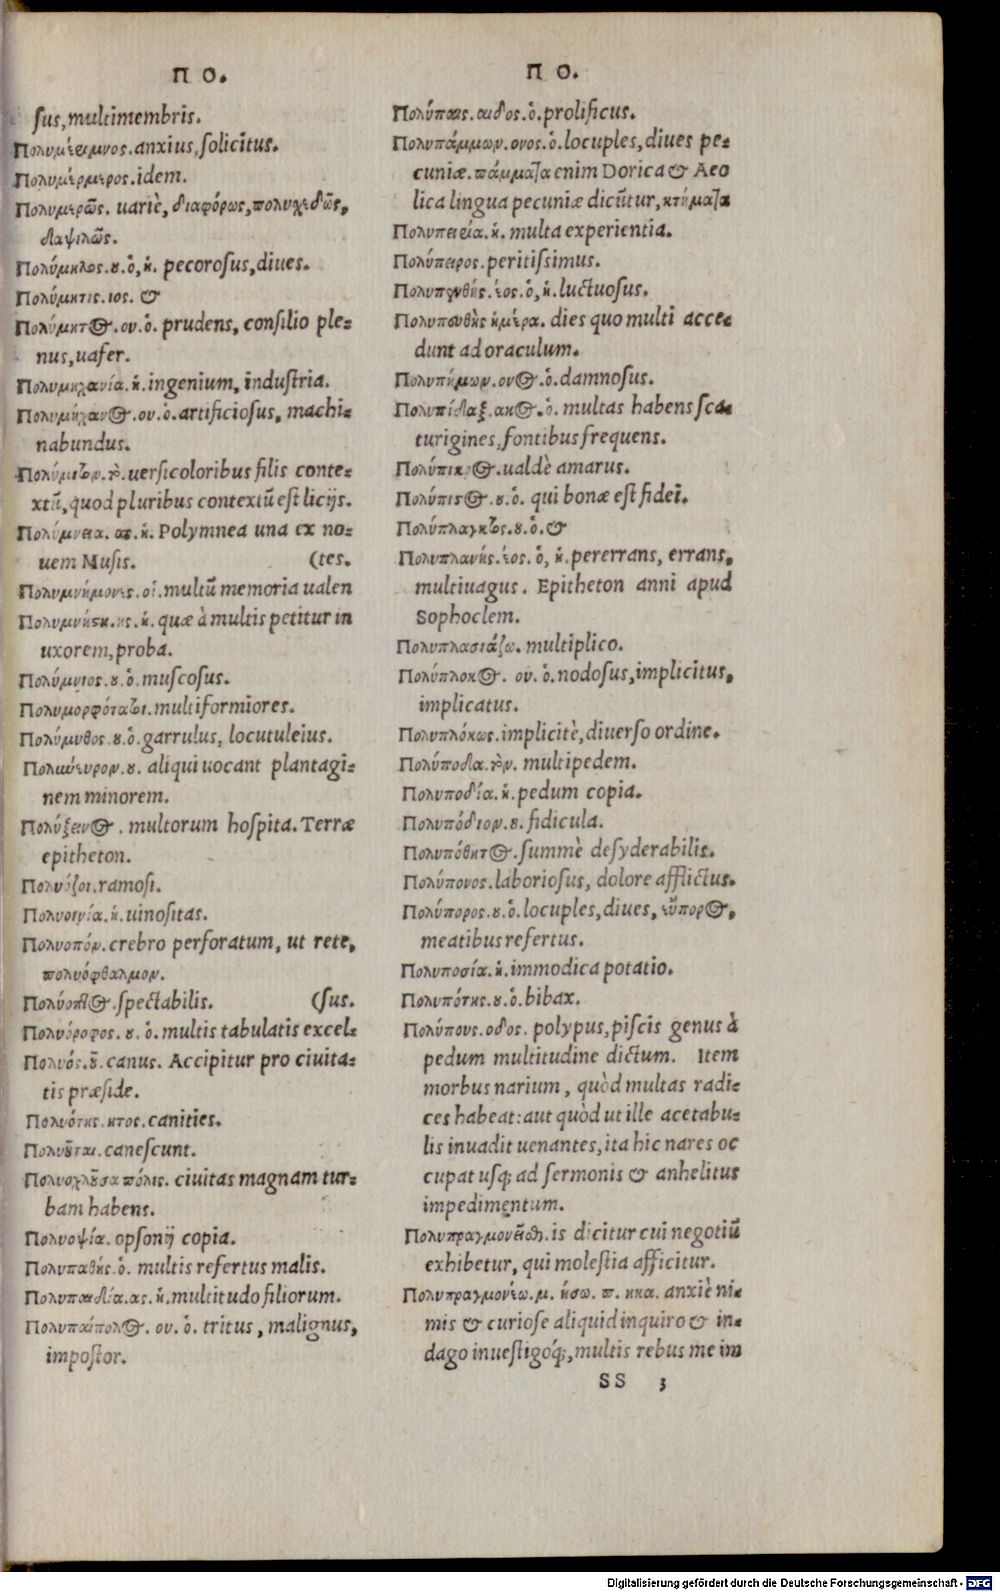 Π Ο.
sus, multimembris.
Πολυμέριμνος. anxius, solicitus.
Πολυμέρμερος. idem.
Πολυμερῶς. uariè, διαφόρως, πολυχιδῶς,
δαψιλῶς.
Πολύμηλος. ου. ὁ, ἡ. pecorosus, diues.
Πολύμητις. ιος. &
Πολύμητος. ου. ὁ. prudens, consilio ple=
nus, uafer.
Πολυμηχανία. ἡ. ingenium, industria.
Πολυμήχανος. ου. ὁ. artificiosus, machi=
nabundus.
Πολύμιτον. τὸ. uersicoloribus filis conte=
xtũ, quod pluribus contextũ est licijs.
Πολύμνεια. ας. ἡ. Polymnea una ex no=
uem Musis. (tes.
Πολυμνήμονες. οἱ. multũ memoria ualen
Πολυμνήστη. ης. ἡ. quæ à multis petitur in
uxorem, proba.
Πολύμνιος. ου. ὁ. muscosus.
Πολυμορφόταται. multiformiores.
Πολύμυθος. ου. ὁ. garrulus, locutuleius.
Πολύνευρον. ου. aliqui uocant plantagi=
nem minorem.
Πολύξεινος. multorum hospita. Terræ
epitheton.
Πολύοζοι. ramosi.
Πολυοινία. ἡ. uinositas.
Πολυοπόν. crebro perforatum, ut rete,
πολυόφθαλμον.
Πολύοπτος. spectabilis. (sus.
Πολυόροφος. ου. ὁ. multis tabulatis excel=
Πολυός. οῦ. canus. Accipitur pro ciuita=
tis præside.
Πολυότης. ητος. canities.
Πολυοῦται. canescunt.
Πολυοχλοῦσα πόλις. ciuitas magnam tur=
bam habens.
Πολυοψία. opsonij copia.
Πολυπαθής. ὁ. multis refertus malis.
Πολυπαιδία. ας. ἡ. multitudo filiorum.
Πολυπαίπαλος. ου. ὁ. tritus, malignus,
impostor.
Π Ο.
Πολύπαις. αιδος. ὁ. prolificus.
Πολυπάμμων. ονος. ὁ. locuples, diues pe=
cuniæ. πάμματα enim Dorica & Aeo
lica lingua pecuniæ dicũtur, κτήματα
Πολυπειρία. ἡ. multa experientia.
Πολύπειρος. peritissimus.
Πολυπενθής. έος. ὁ, ἡ. luctuosus.
Πολυπευθὴς ἡμέρα. dies quo multi acce=
dunt ad oraculum.
Πολυπήμων. ονος. ὁ. damnosus.
Πολυπίδαξ. ακος. ὁ. multas habens sca=
turigines, fontibus frequens.
Πολύπικρος. ualdè amarus.
Πολύπιστος. ου. ὁ. qui bonæ est fidei.
Πολύπλαγκτος. ου. ὁ. &
Πολυπλανής. έος. ὁ, ἡ. pererrans, errans,
multiuagus. Epitheton anni apud
Sophoclem.
Πολυπλασιάζω. multiplico.
Πολύπλοκος. ου. ὁ. nodosus, implicitus,
implicatus.
Πολυπλόκως. implicitè, diuerso ordine.
Πολύποδα. τὸν. multipedem.
Πολυποδία. ἡ. pedum copia.
Πολυπόδιον. ου. fidicula.
Πολυπόθητος. summè desyderabilis.
Πολύπονος. laboriosus, dolore afflictus.
Πολύπορος. ου. ὁ. locuples, diues, εὔπορος,
meatibus refertus.
Πολυποσία. ἡ. immodica potatio.
Πολυπότης. ου. ὁ. bibax.
Πολύπους. οδος. polypus, piscis genus à
pedum multitudine dictum. Item
morbus narium, quòd multas radi=
ces habeat: aut quòd ut ille acetabu=
lis inuadit uenantes, ita hic nares oc
cupat usq; ad sermonis & anhelitus
impedimentum.
Πολυπραγμονεῖσθαι. is dicitur cui negotiũ
exhibetur, qui molestia afficitur.
Πολυπραγμονέω. μ. ήσω. π. ηκα. anxiè ni=
mis & curiose aliquid inquiro & in=
dago inuestigoq́;, multis rebus me im
SS 3
Digitalisierung gefördert durch die Deutsche Forschungsgemeinschaft - DFG